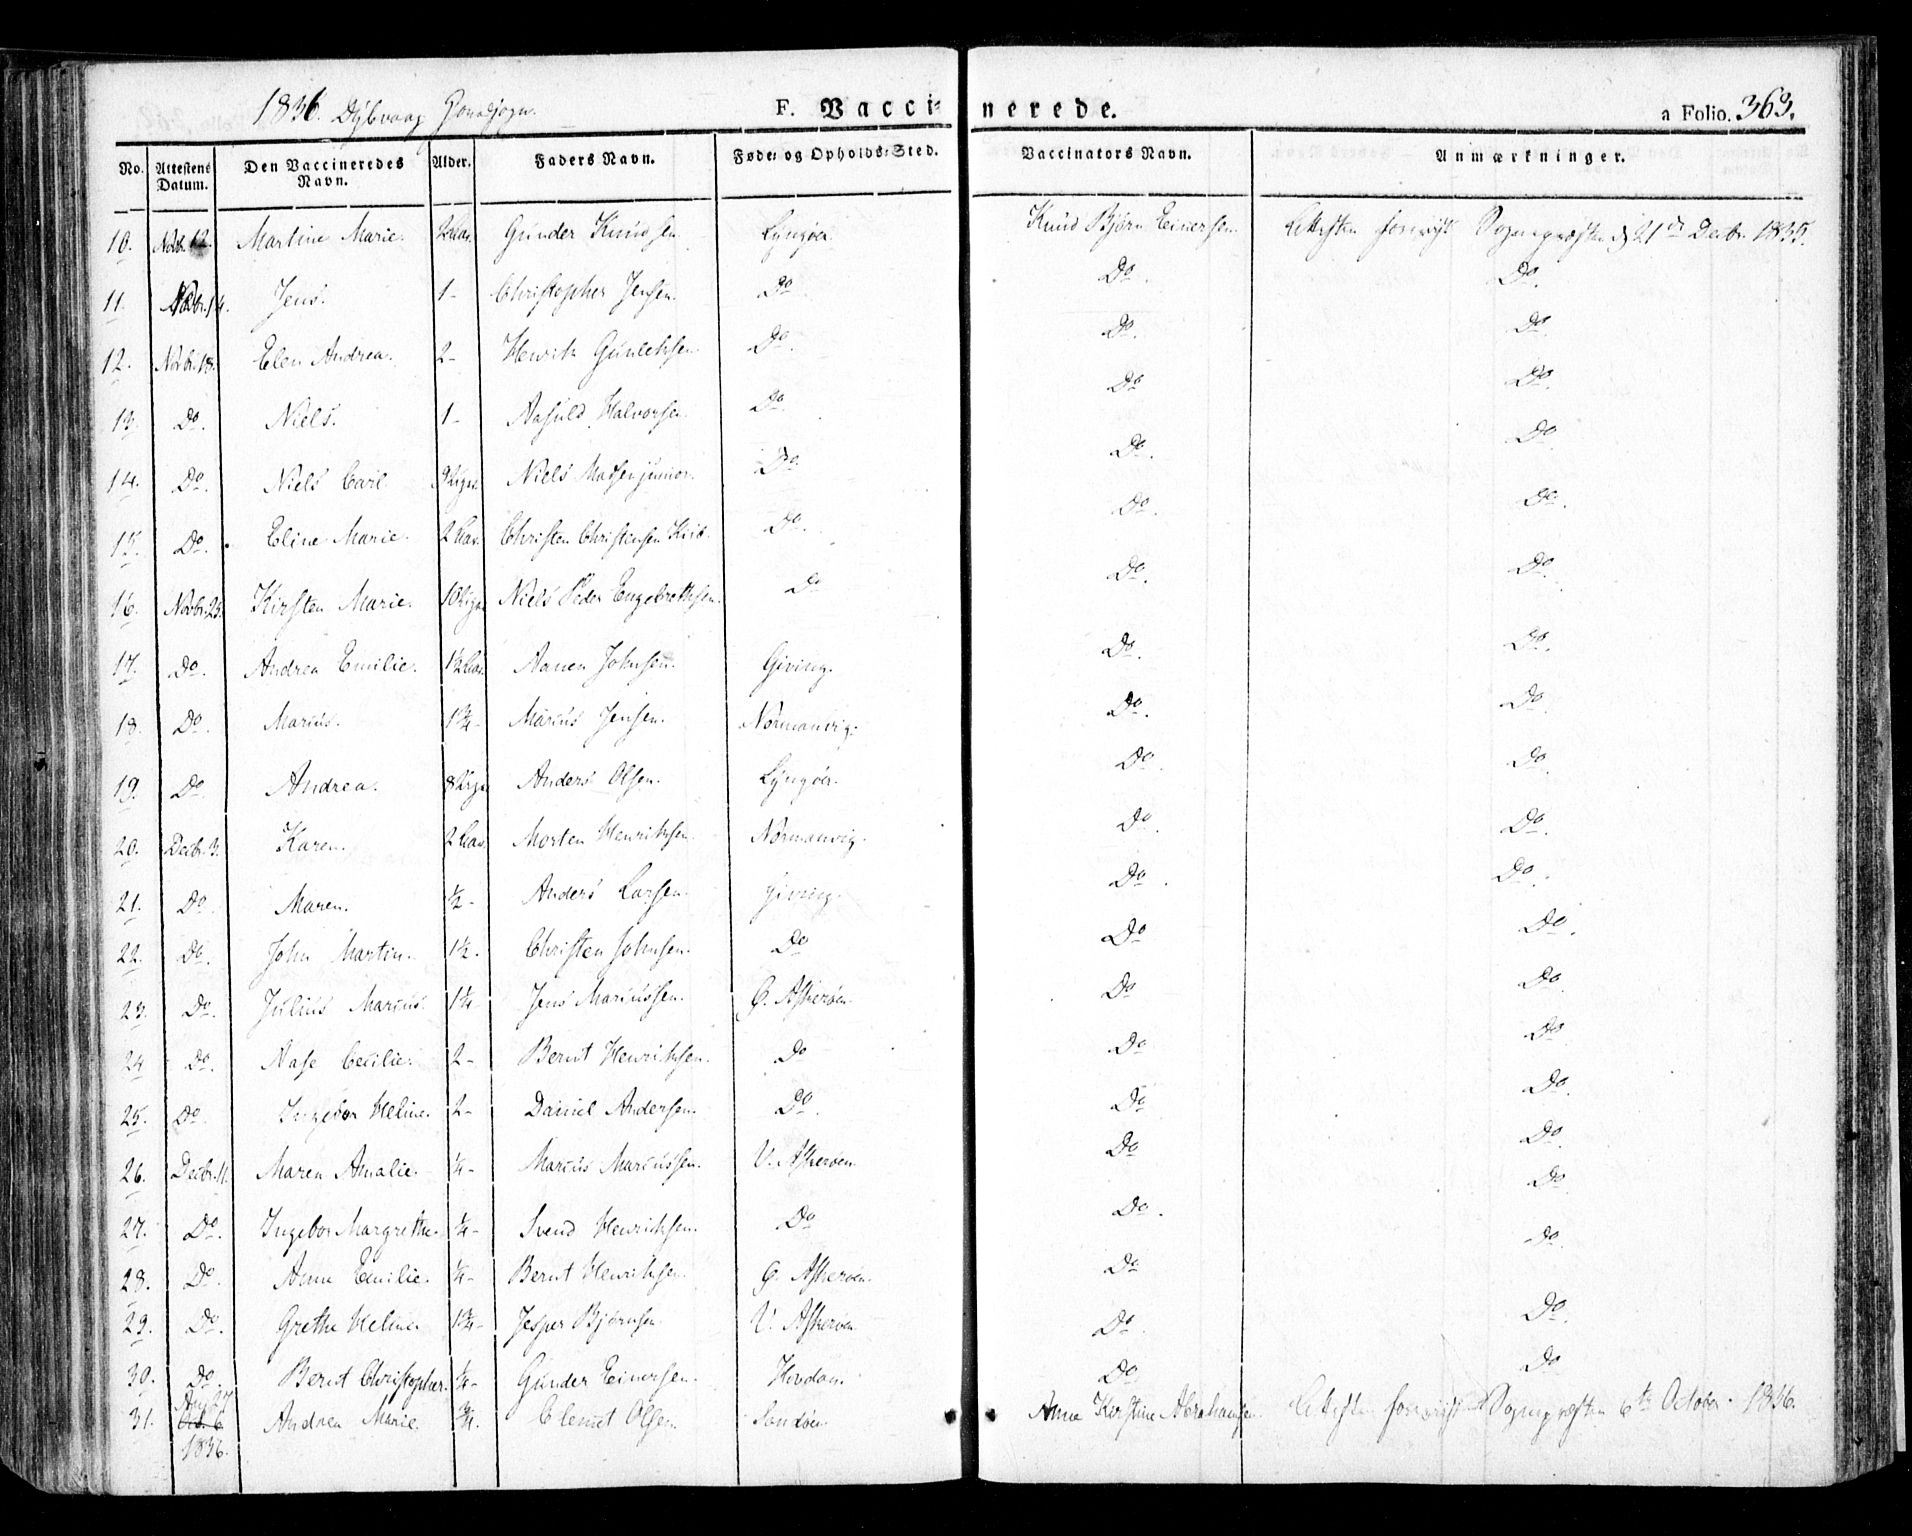 1836. Dÿbvaag Sogn. F. Vaccinerede. a Folio. 363.
No. Attestens Datum. Den Vaccineredes Navn. Alder. Faders Navn. Føde- og Opholds-Sted. Vaccinators Navn. Anmærkninger.
10. Novbr. 12. Martine Marie. 2 Aar. Gunder Knudsen Lyngøer Knud Bjørn Einersen Attesten foreviist Sognepræsten d 21de Decbr. 1835.
11. Novbr. 14. Jens. 1- Christopher Jensen. Do. Do. Do.
12. Novbr. 18. Elen Andrea. 2- Henrik Gunleksen Do. Do. Do.
13. Do. Niels. 1- Aasuld Halvorsen Do. Do. Do.
14. Do. Niels Carl 9 Uger Niels Madsen junior. Do. Do. Do.
15. Do. Eline Marie. 2 Aar. Christen Christensen Do. Do. Do.
16. Novbr. 25. Kirsten Marie. 18 Uger Niels Peder Engebrethsen. Do Do. Do.
17. Do. Andrea Emilie. 1½ Aar. Aanen Johnsen. Giving. Do. Do.
18. Do. Marius. 1¾- Marius Jensen. Normanvig. Do. Do.
19. Do. Andrea. 8 Uger Anders Olsen. Lyngøer. Do. Do.
20. Decbr. 3. Karen. 2 Aar Morten Henriksen Normanvig. Do. Do.
21. Do. Maren. ½- Anders Larsen. Giving. Do. Do.
22. Do. John Martin. 1½. Christen Johnsen. Do Do Do.
23. Do. Julius Marius. 1¼- Jens Mariussen. Ø. Askerøen Do Do.
24 Do. Aase Cecilie. 2- Bernt Henriksen. Do Do. Do.
25. Do. Ingebor Helene. 2- Daniel Andersen. Do. Do. Do.
26. Decbr. 11. Maren Amalie. ¼- Marius Mariussen. V. Askerøen Do Do.
27. Do. Ingebor Margrethe. ¼- Svend Henriksen. Do Do. Do
28. Do. Anne Emilie. ¼- Bernt Henriksen. Ø. Askerøen. Do Do.
29. Do. Grethe Helene 1¾- Jesper Bjørnsen V. Askerøen Do. Do.
30. Do. Bernt Christopher. ¼- Gunder Einersen. Do. Do
31. Aug. 27 1836. Andrea Marie. ¾. Clemet Olsen Sandøen Anne Kirstine Abrahamsen Attesten foreviist Sognepræsten 6te October 1836.